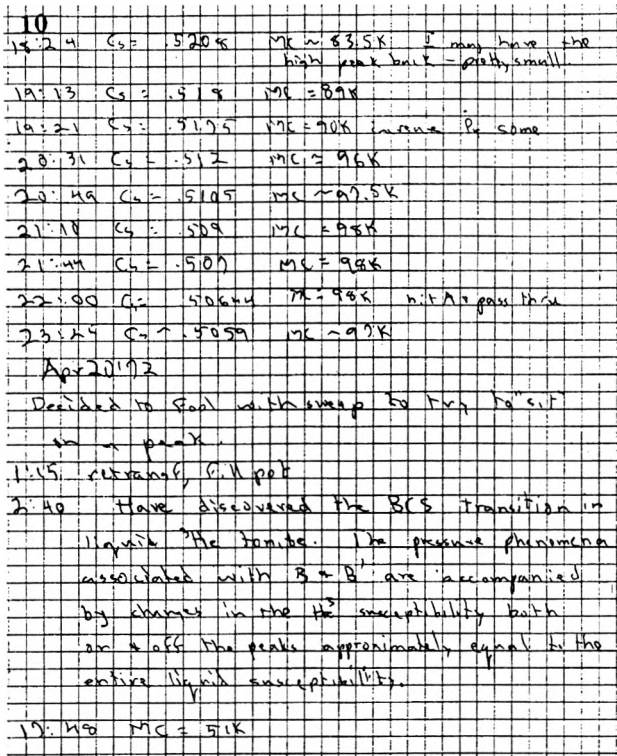 10
18:24 Cs = .5208 MC ~ 83.5K I may have the
high peak back - pretty small.
19:13 Cs = .518 MC = 89K
19:21 Cs = .5175 MC = 90K some
20:31 Cs = .512 MC = 96K
20:49 Cs = .5105 MC ~ 97.5K
21:10 Cs = .509 MC = 98K
21:44 Cs = .507 MC = 98K
22:00 Cs = .50644 M = 98K hit A & pass thru
23:24 Cs ~ .5059 MC ~ 97K
Apr 20 '72
Decided to fool with sweep to try to "sit"
in a peak.
1:15 retransf, fill pot
2:40 Have discovered the BCS transition in
liquid ³He tonite. The pressure phenomena
associated with B & B' are accompanied
by changes in the He³ susceptibility both
on & off the peaks approximately equal to the
entire liquid susceptibility.
17:48 MC = 51K